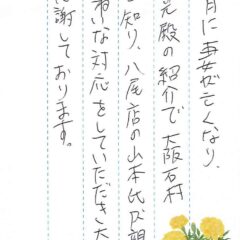 月に妻が亡くなり、
光殿の紹介で大阪石材
知り、八尾店の山本氏が親
ねいな対応をしていただき大
謝しております。